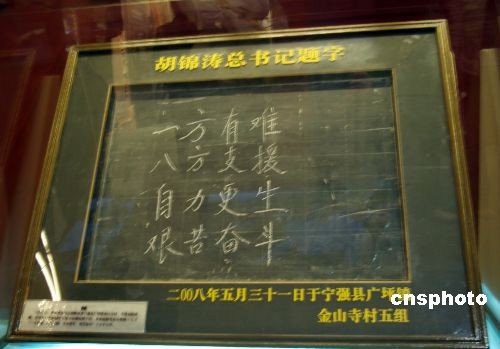 胡锦涛总书记题字
一方有难
八方支援
自力更生
艰苦奋斗
二00八年五月三十一日于宁强县广坪镇
金山寺村五组
cnsphoto